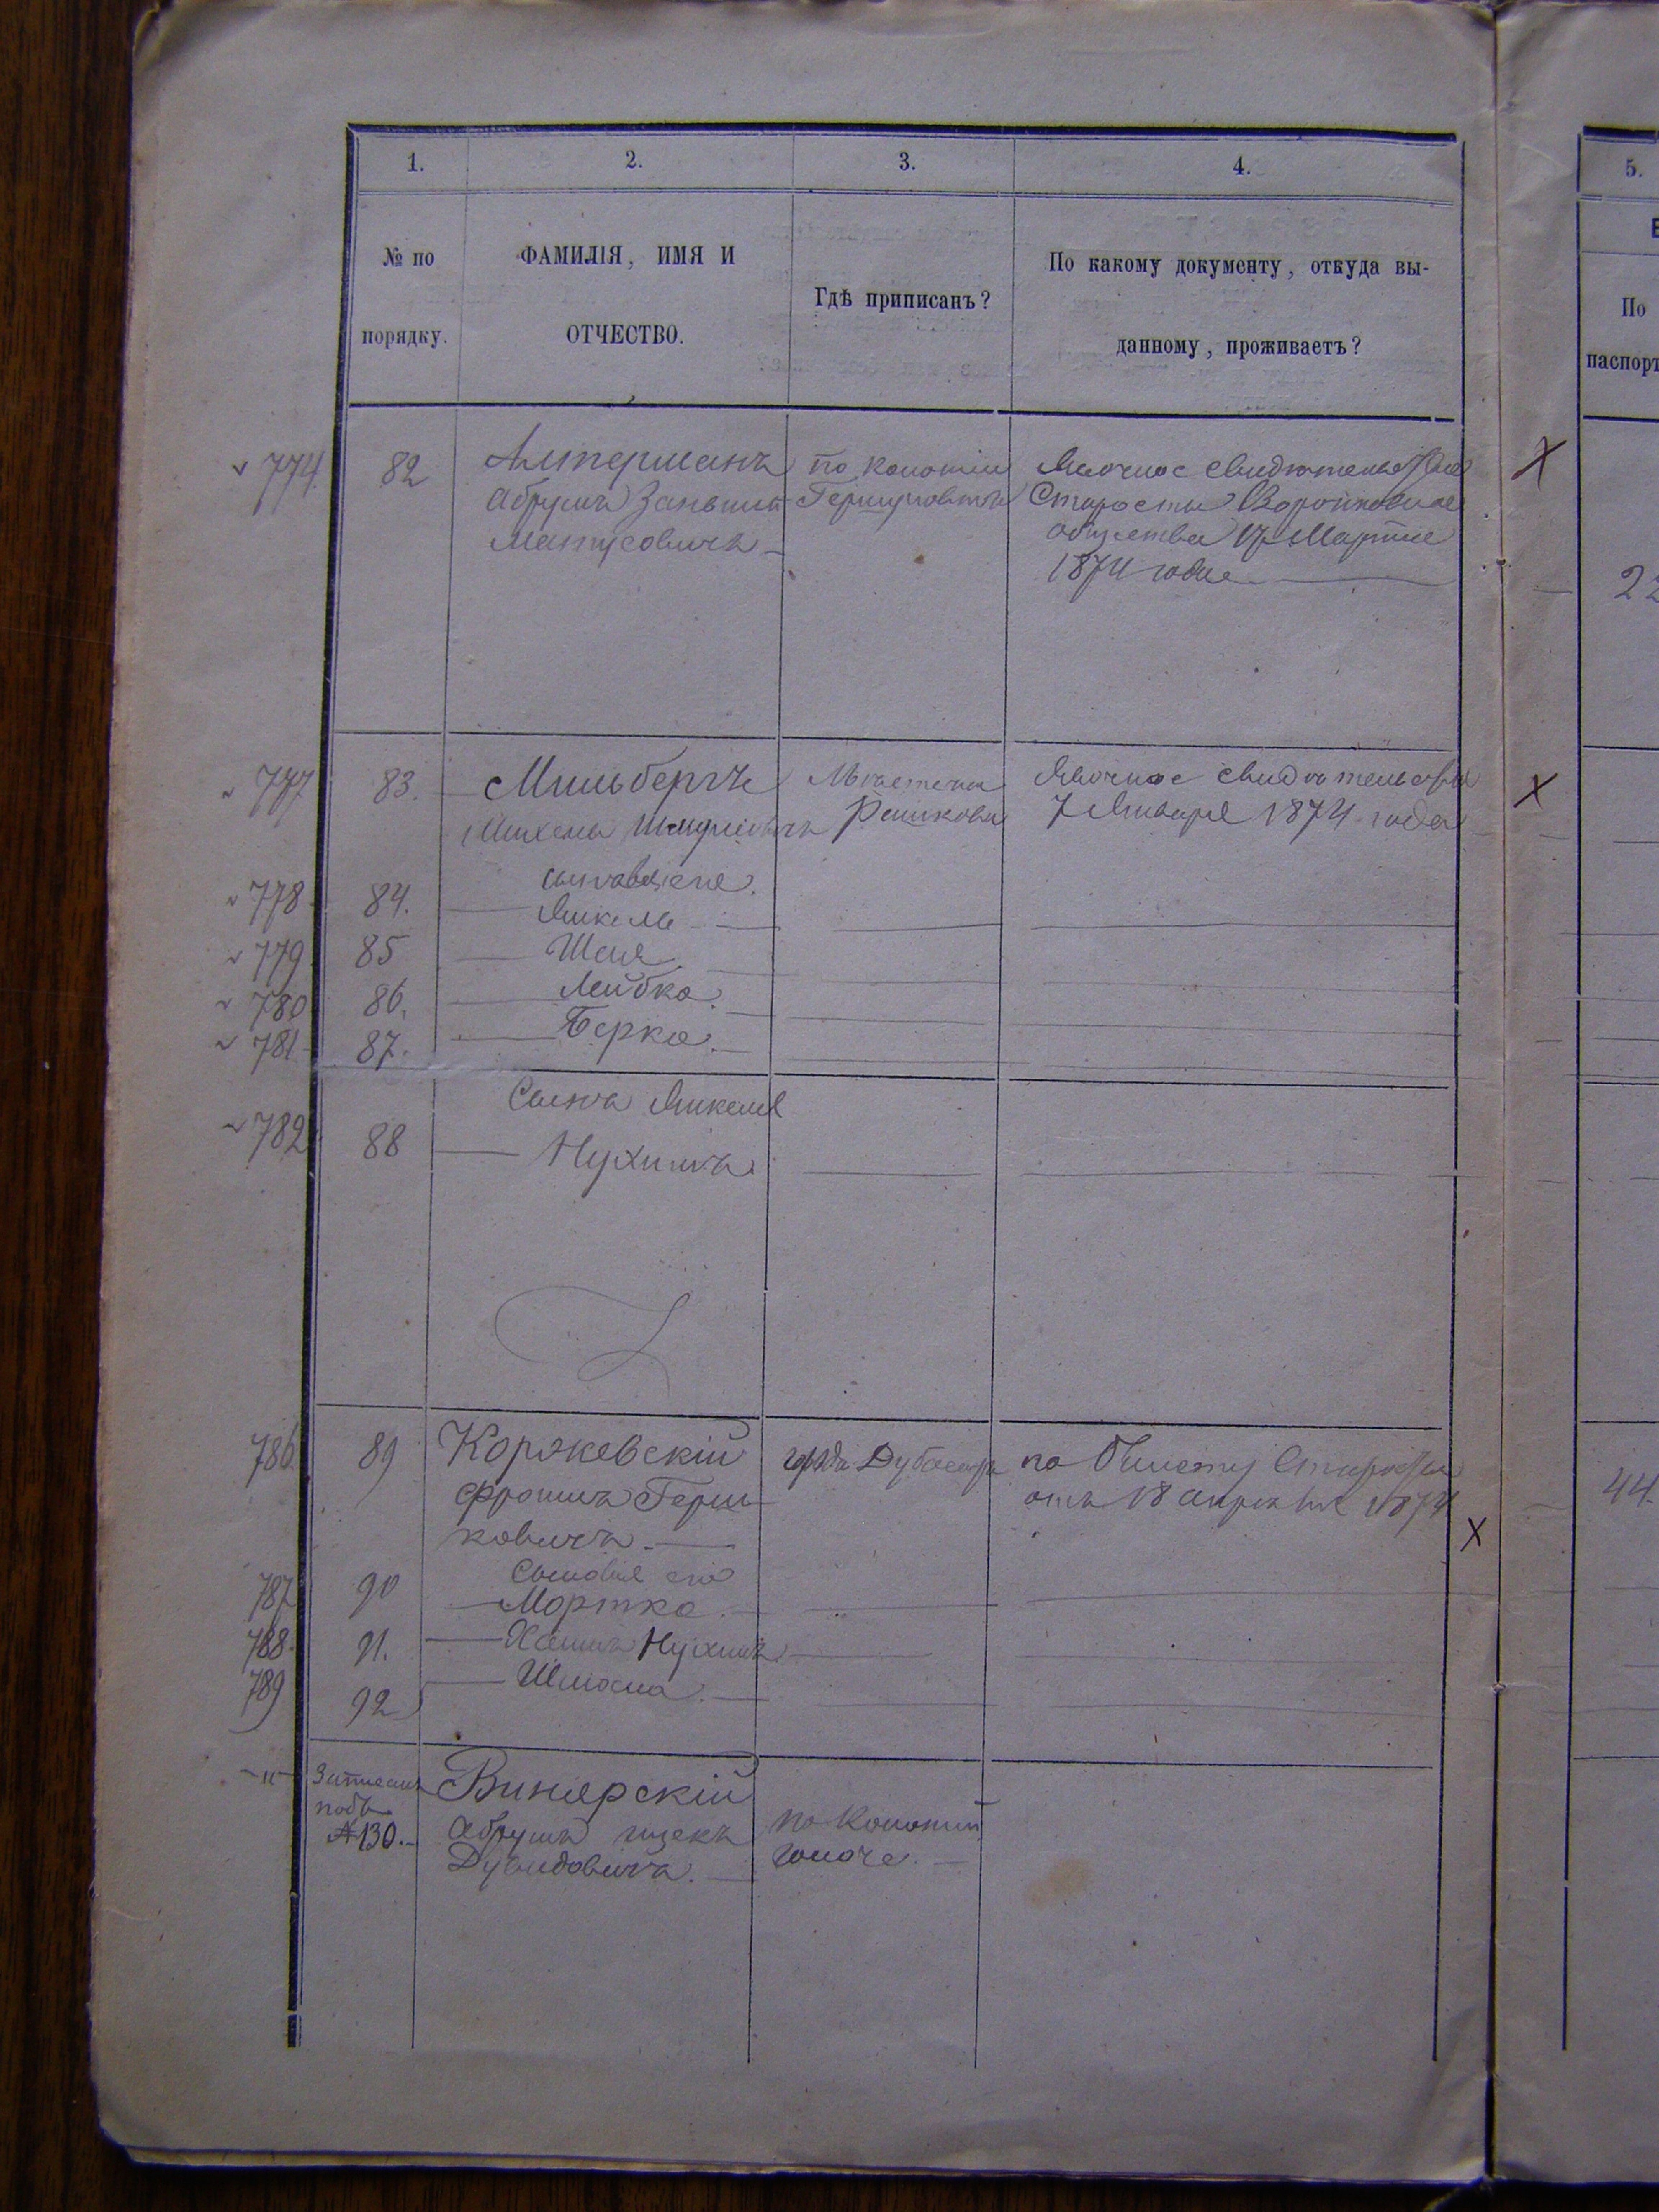 1.
2.
3.
4.
5.
№ по
порядку.
ФАМИЛІЯ, ИМЯ И
ОТЧЕСТВО.
Гдѣ приписанъ?
По какому документу, откуда вы-
данному, проживаетъ?
По
паспорт
774
82
Алтерманъ
Абрумъ
Матусовичъ
по Колоніи
Старосты
общества 17 Марта
1874 года
22
777
83.
Мильбергъ
Михель
Мѣстечка
Рашкова
Явочное свидѣтельство
7 Января 1874 года
сыновья его
778
84.
Янкель
779
85
Шая
780
86.
Лейбка
781
87.
Берко
Сынъ Янкеля
782
88
Нухимъ
786
89
Коржевскій
Фроимъ Герш-
ковичъ
города Дубосаръ
по билету Старосты
отъ 18 апрѣля 1874
44.
Сыновья его
787
90
Мортко
788
91.
Хаимъ Нухимъ
789
92
Шмома
Записанъ
подъ
№130.
Винярскій
Абрумъ ицекъ
Дувидовичъ
по Колоніи